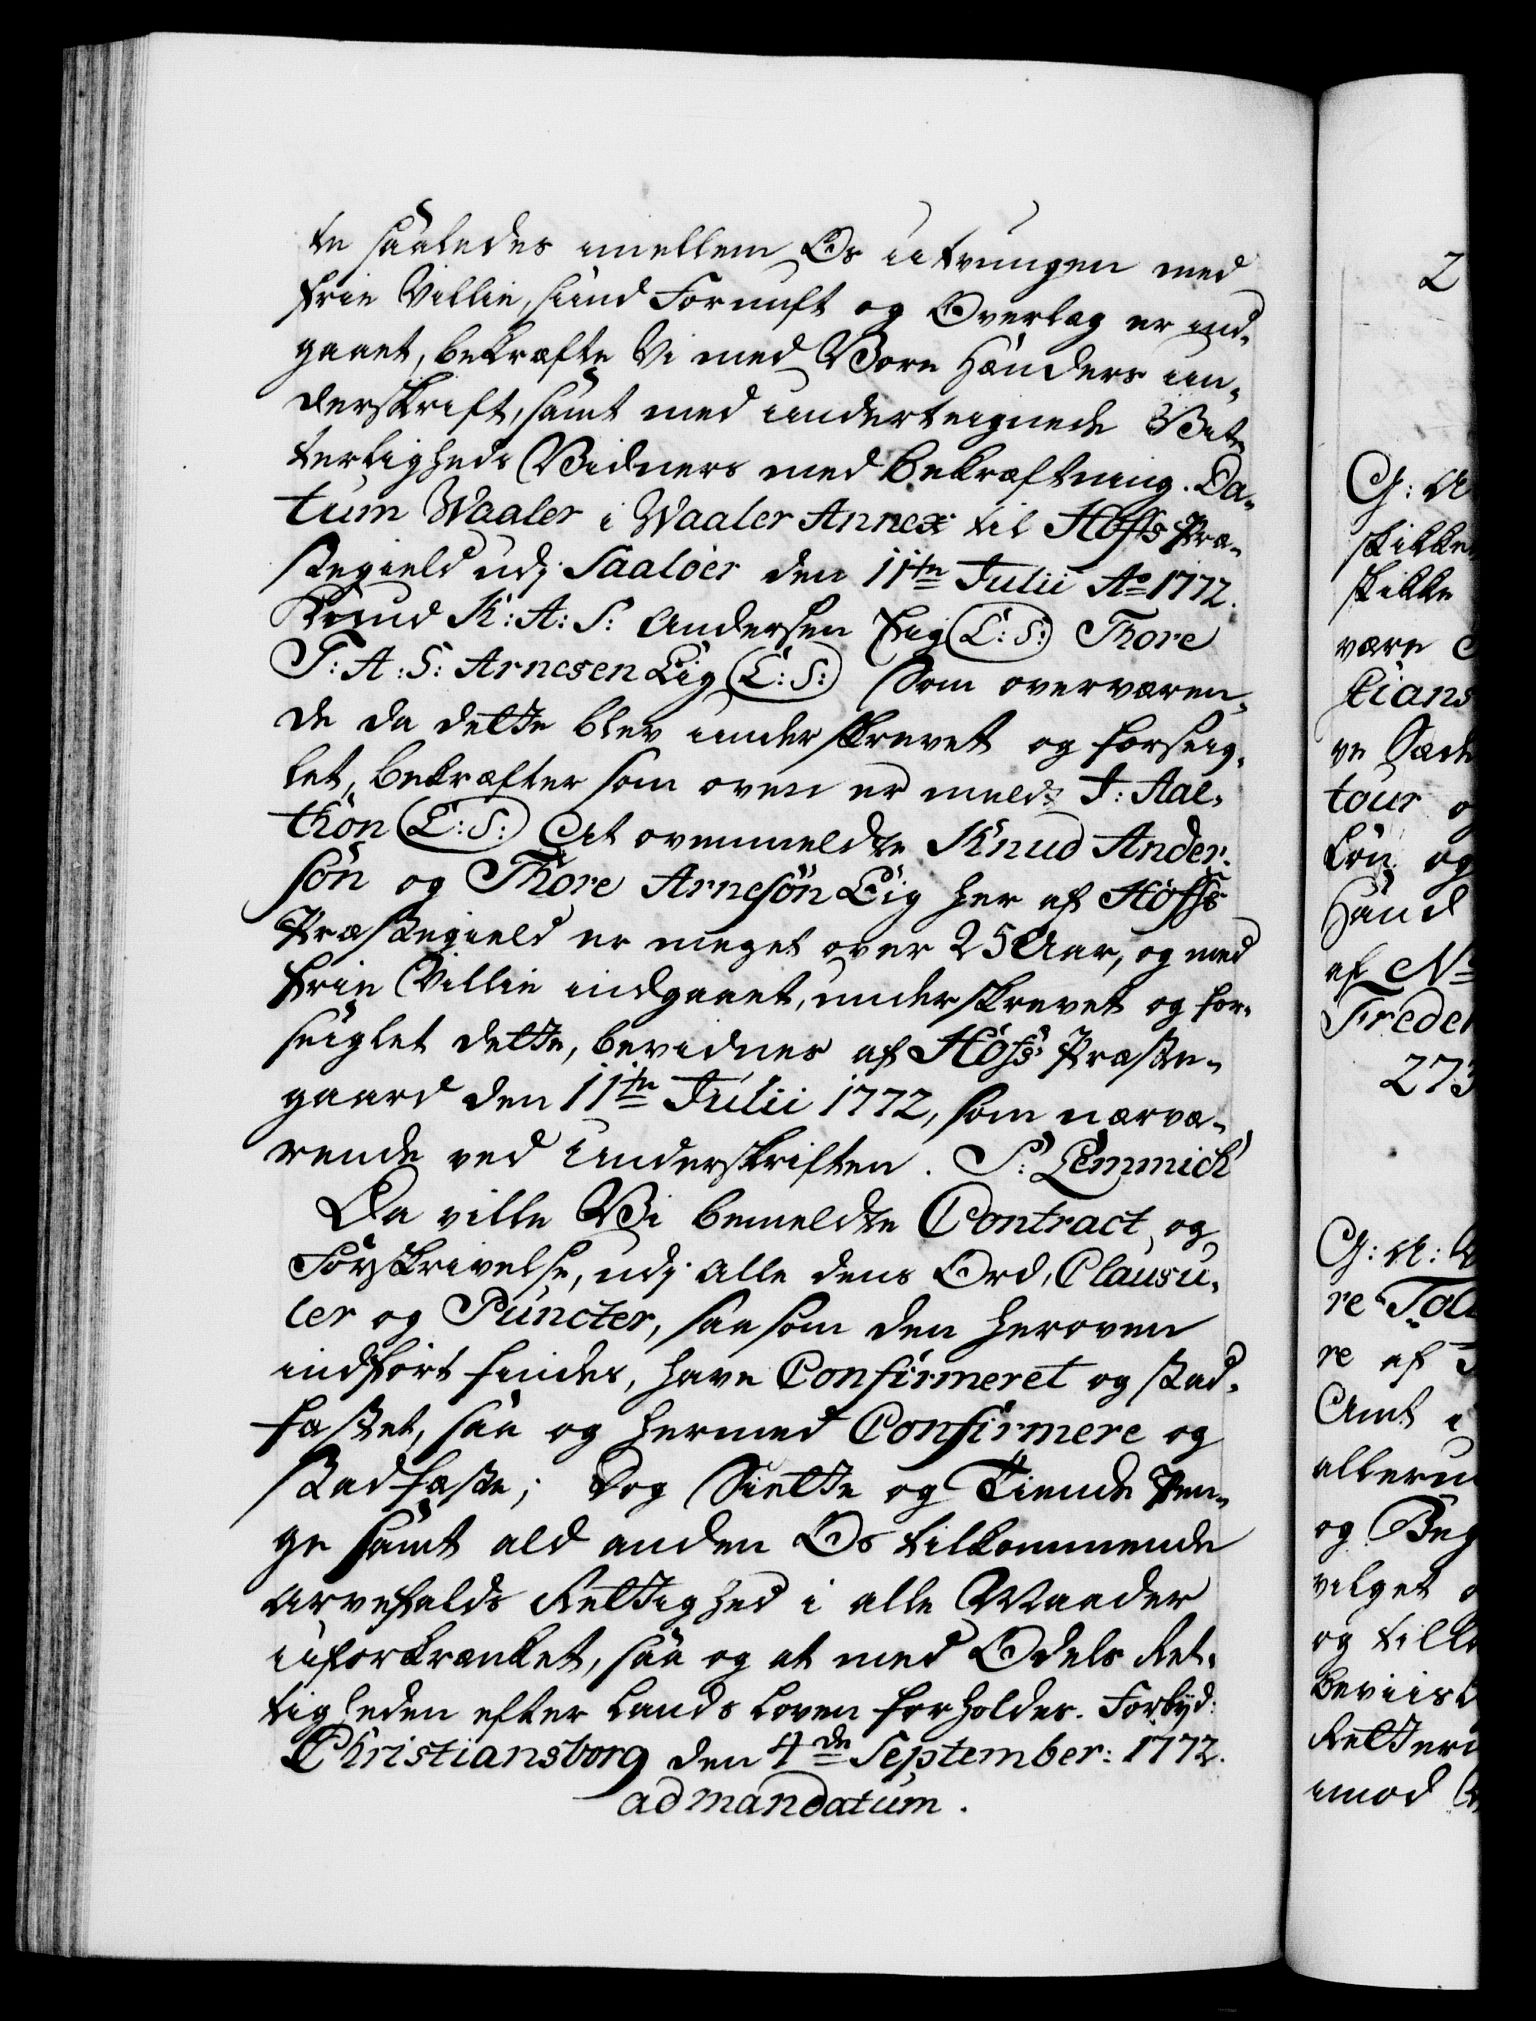 te saaledes imellem Os utvungen med
frie Villie, sund Fornuft og Overlæg er ind-
gaaet, bekræfte Vi med Vore Hænders un-
derskrift, samt med underteignede Vit-
terligheds Vidners med bekræftning. Da-
tum Waaler i Waaler Annex til Hoffs Præ-
stegield udj Saaløer den 11te Julii Ao 1772.
Knud K: A: S: Andersen Lig (L: S:) Thore
T: A: S: Arnesen Lig (L: S:) Som overværen-
de da dette blev underskrevet og forseig-
let, bekræfter som oven er meldt J: Aal-
thon (L: S:) At ovenmeldte Knud Ander-
søn og Thore Arnesøn Lig her af Hoffs
Præstegield er meget over 25 Aar, og med
frie Villie indgaaet, underskrevet og for-
seiglet dette, bevidnes af Hofs Præste-
gaard den 11te Julii 1772, som nærvæ-
rende ved Underskriften. S: Lemmich
Da ville Vi bemeldte Contract og
Forskrivelse, udj alle dens Ord, Clausu-
ler og Puncter, saasom den heroven
indført findes, have Confirmeret og stad-
fæstet, saa og hermed Confirmere og
stadfæste; Dog Siette og Tiende Pen-
ge samt ald anden Os tilkommende
Arvefalds Rettighed i alle Maader
uforkrænket, saa og at med Odels Ret-
tigheden efter Lands Loven forholdes. Forbyd:
Christiansborg den 4de September: 1772.
ad mandatum.
2
G: A
skikke
skikke
være
tians
ve
tour o
Løn og
Haand
af
Freder
273
G: A:
re Tol
re af
Amt
allerun
og Beg
vilget
og till
beviist
Retter
imod